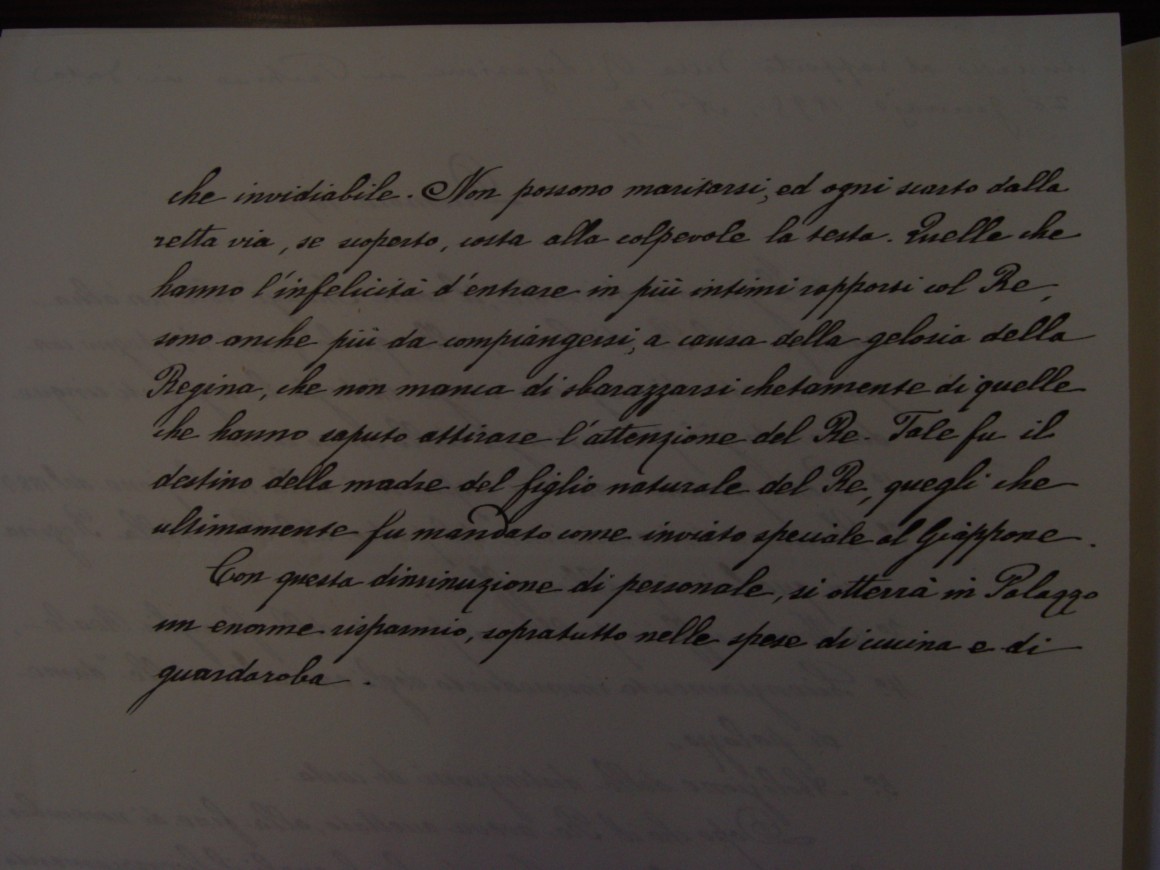 che invidiabile. Non possono maritarsi, ed ogni scarto dalla
retta via, se scoperto, costa alla colpevole la testa. Quelle che
hanno l'infelicità d'entrare in più intimi rapporti col Re,
sono anche più da compiangersi, a causa della gelosia della
Regina, che non manca di sbarazzarsi chetamente di quelle
che hanno saputo attirare l'attenzione del Re. Tale fu il
destino della madre del figlio naturale del Re, quegli che
ultimamente fu mandato come inviato speciale al Giappone.
Con questa diminuzione di personale, si otterrà in Palazzo
un enorme risparmio, sopratutto nelle spese di cucina e di
guardaroba.